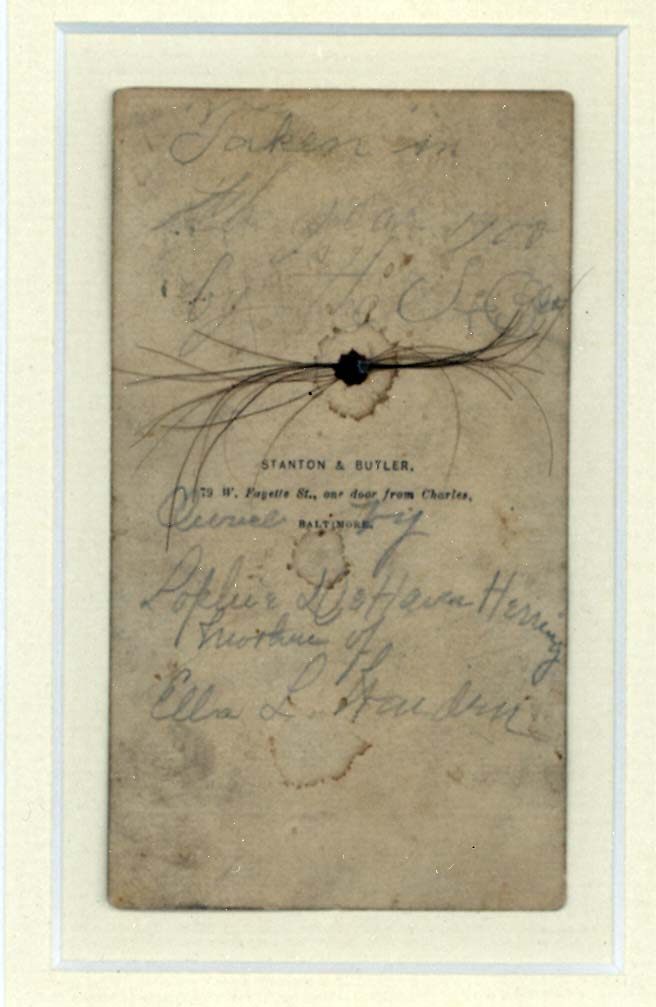 Taken in
the year
by the
STANTON & BUTLER,
79 W. Fayette St., one door from Charles,
BALTIMORE.
Owned by
Sophie DeHaven Herring
Mother of
Ella L.